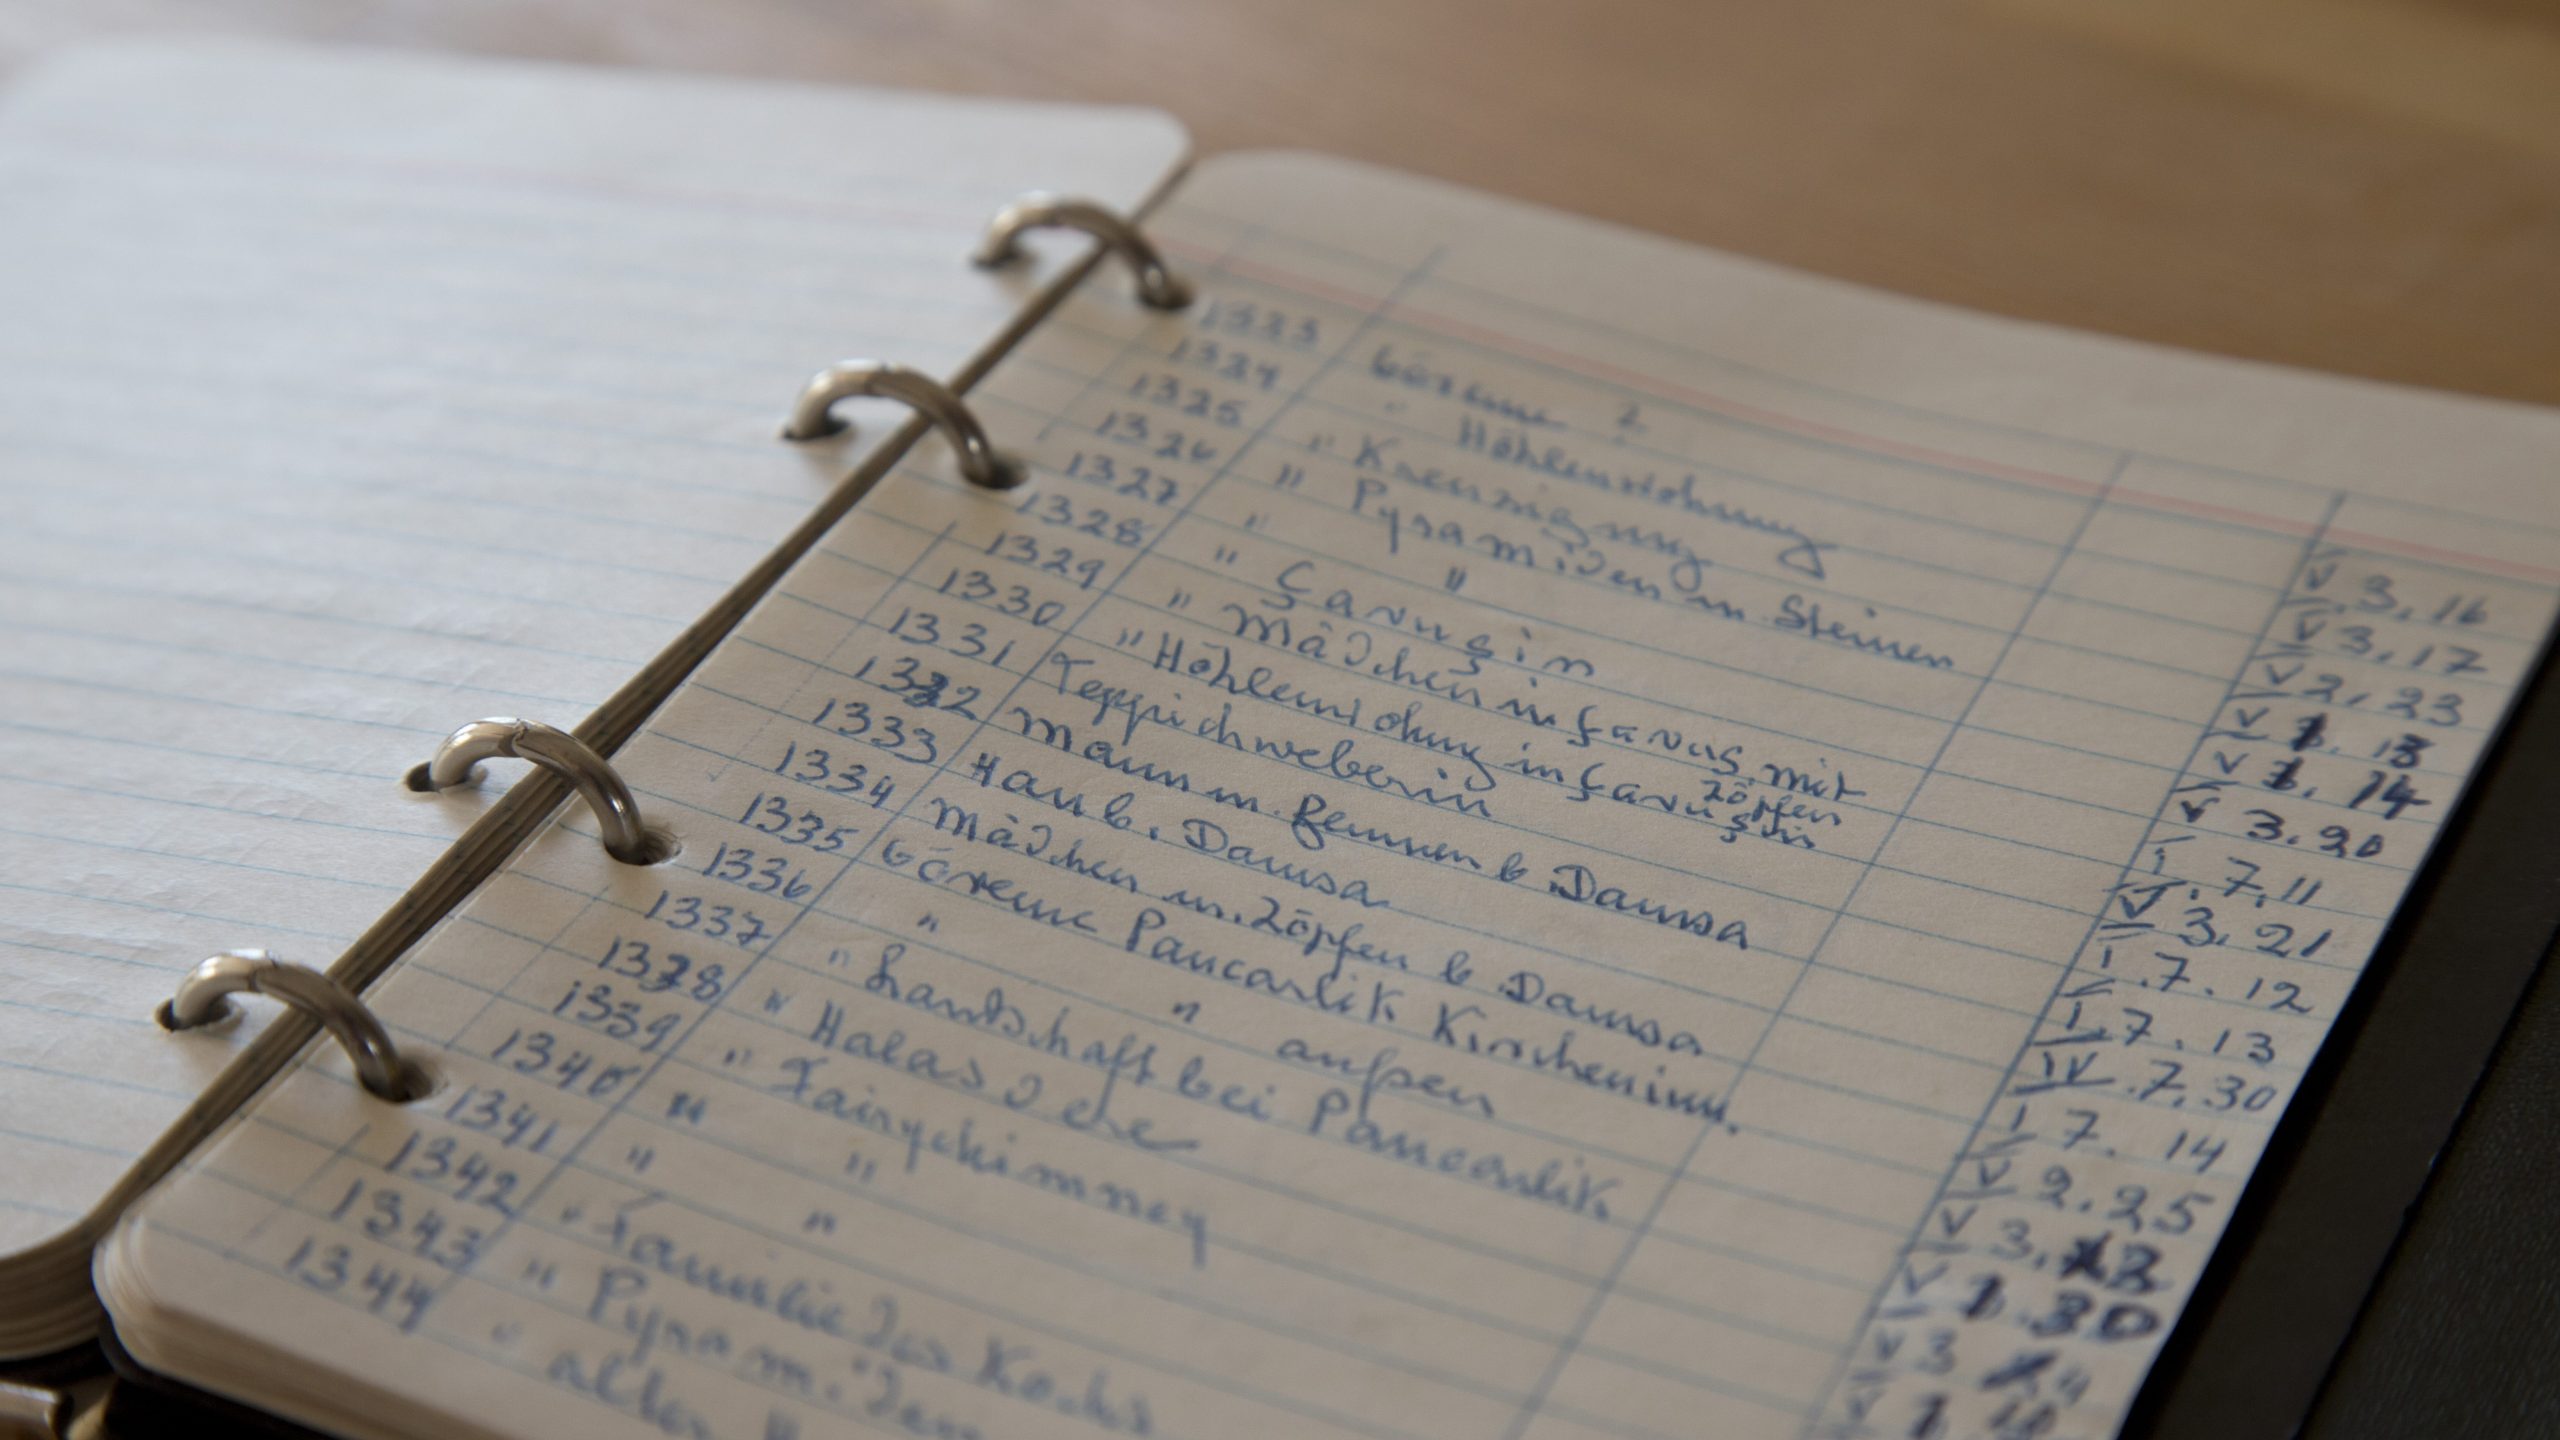 1323 Göreme 2
1324 " Höhlenwohnung
1325 " Kreuzigung
1326 " Pyramiden m. Steinen
1327 " "
1328 " Çavuşin
1329 " Mädchen in Çavuş. mit Zöpfen
1330 " Höhlenwohng in Çavuşin
1331 Teppichweberin
1332 Mann m. Hennen b. Damsa
1333 Haus b. Damsa
1334 Mädchen m. Zöpfen b. Damsa
1335 Göreme Pancarlik Kircheninn.
1336 " " außen
1337 " Landschaft bei Pancarlik
1338 " Halasdere
1339 " Fairychimney
1340 " "
1341 " "
1342 " Familie des Kochs
1343 " Pyramiden
1344 " altes
V 3.16
V 3.17
V 2.23
V 1.13
V 1.14
V 3.20
I.7.11
V 3.21
I.7.12
I.7.13
IV.7.30
I 7.14
V 2.25
V 3.
V 1.30
V 3
V 1.